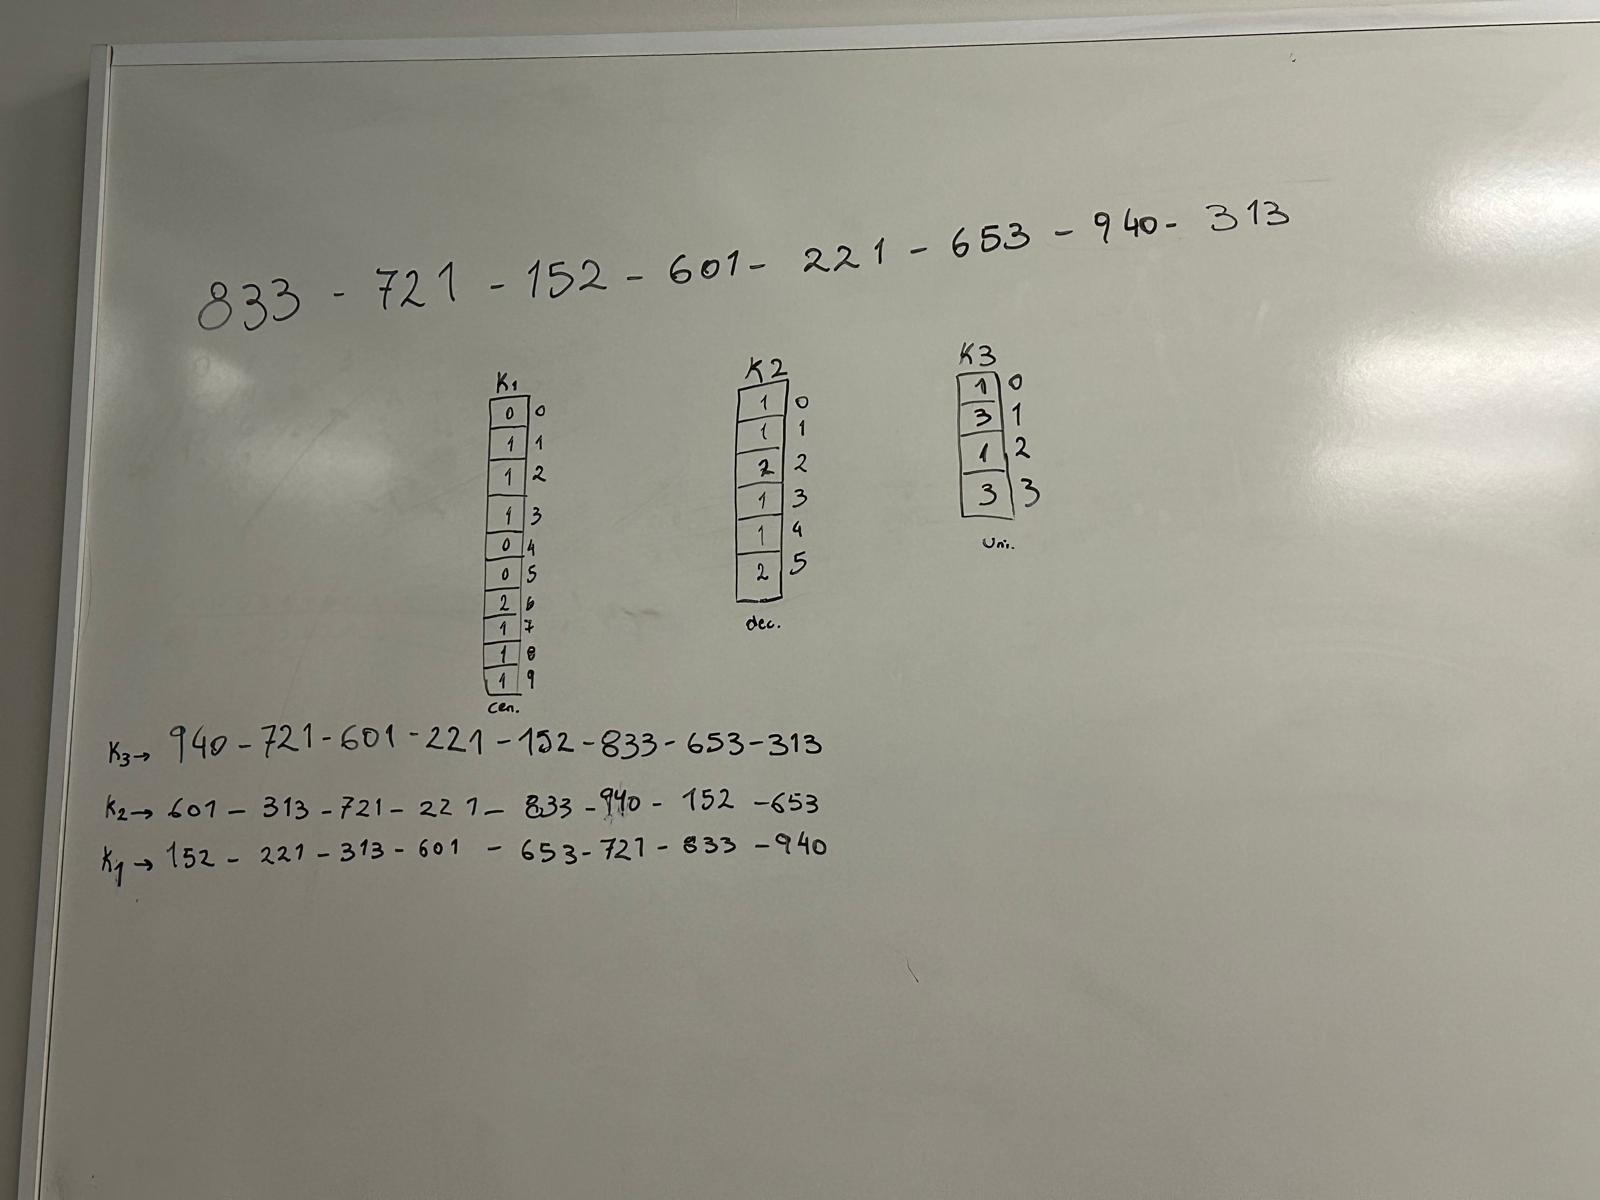 833 - 721 - 152 - 601 - 221 - 653 - 940 - 313
K1 K2 K3
0 0
1 1
1 2
1 3
0 4
0 5
2 6
1 7
1 8
1 9
cen.
1 0
1 1
2 2
1 3
1 4
2 5
dec.
1 0
3 1
1 2
3 3
Uni.
K3→ 940 - 721 - 601 - 221 - 152 - 833 - 653 - 313
K2→ 601 - 313 - 721 - 221 - 833 - 940 - 152 - 653
K1→ 152 - 221 - 313 - 601 - 653 - 721 - 833 - 940